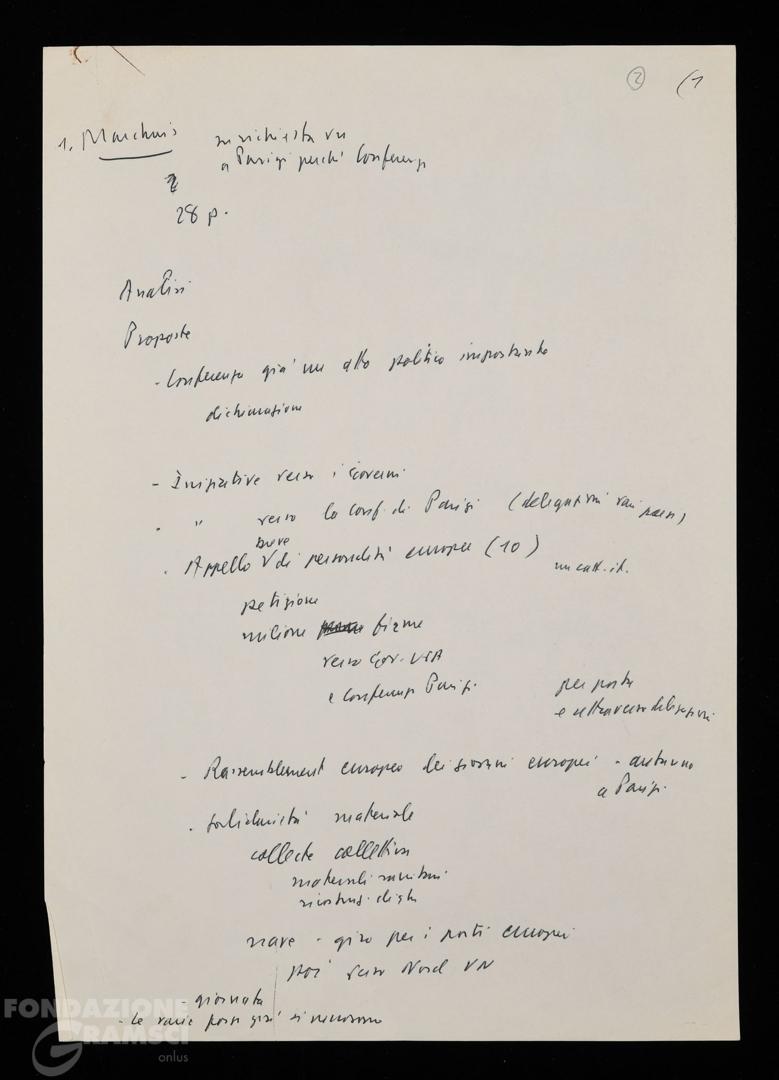 2 (1
1. Marchais su richiesta VN
a Parigi perché Conferenza
28 p.
Analisi
Proposte
- Conferenza già un atto politico importante
dichiarazione
- Iniziative verso i Governi
- " verso la Conf. di Parigi (delegazioni vari paesi)
breve
- Appello V di personalità europee (10)
un catt. it.
petizione
milione firme
verso Gov. USA
e Conferenza Parigi
per posta
e attraverso delegazioni
- Rassemblement europeo dei giovani europei - autunno
a Parigi.
- Solidarietà materiale
collecte collettiva
materiali sanitari
ricostruz. dighe
nave - giro per i porti europei
poi verso Nord VN
- giornata
- le varie
FONDAZIONE
GRAMSCI
onlus